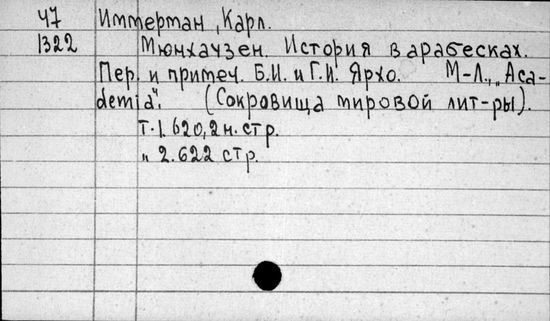 47 Иммерман, Карл.
1322 Мюнхаузен. История в арабесках.
Пер. и примеч. Б.И. и Г.И. Ярхо. М-Л., „Aca-
demia". (Сокровища мировой лит-ры).
Т.1. 620, 2 н. стр.
„ 2. 622 стр.